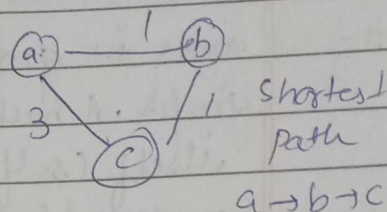 1
a b
3 1 shortest
c path
a → b → c